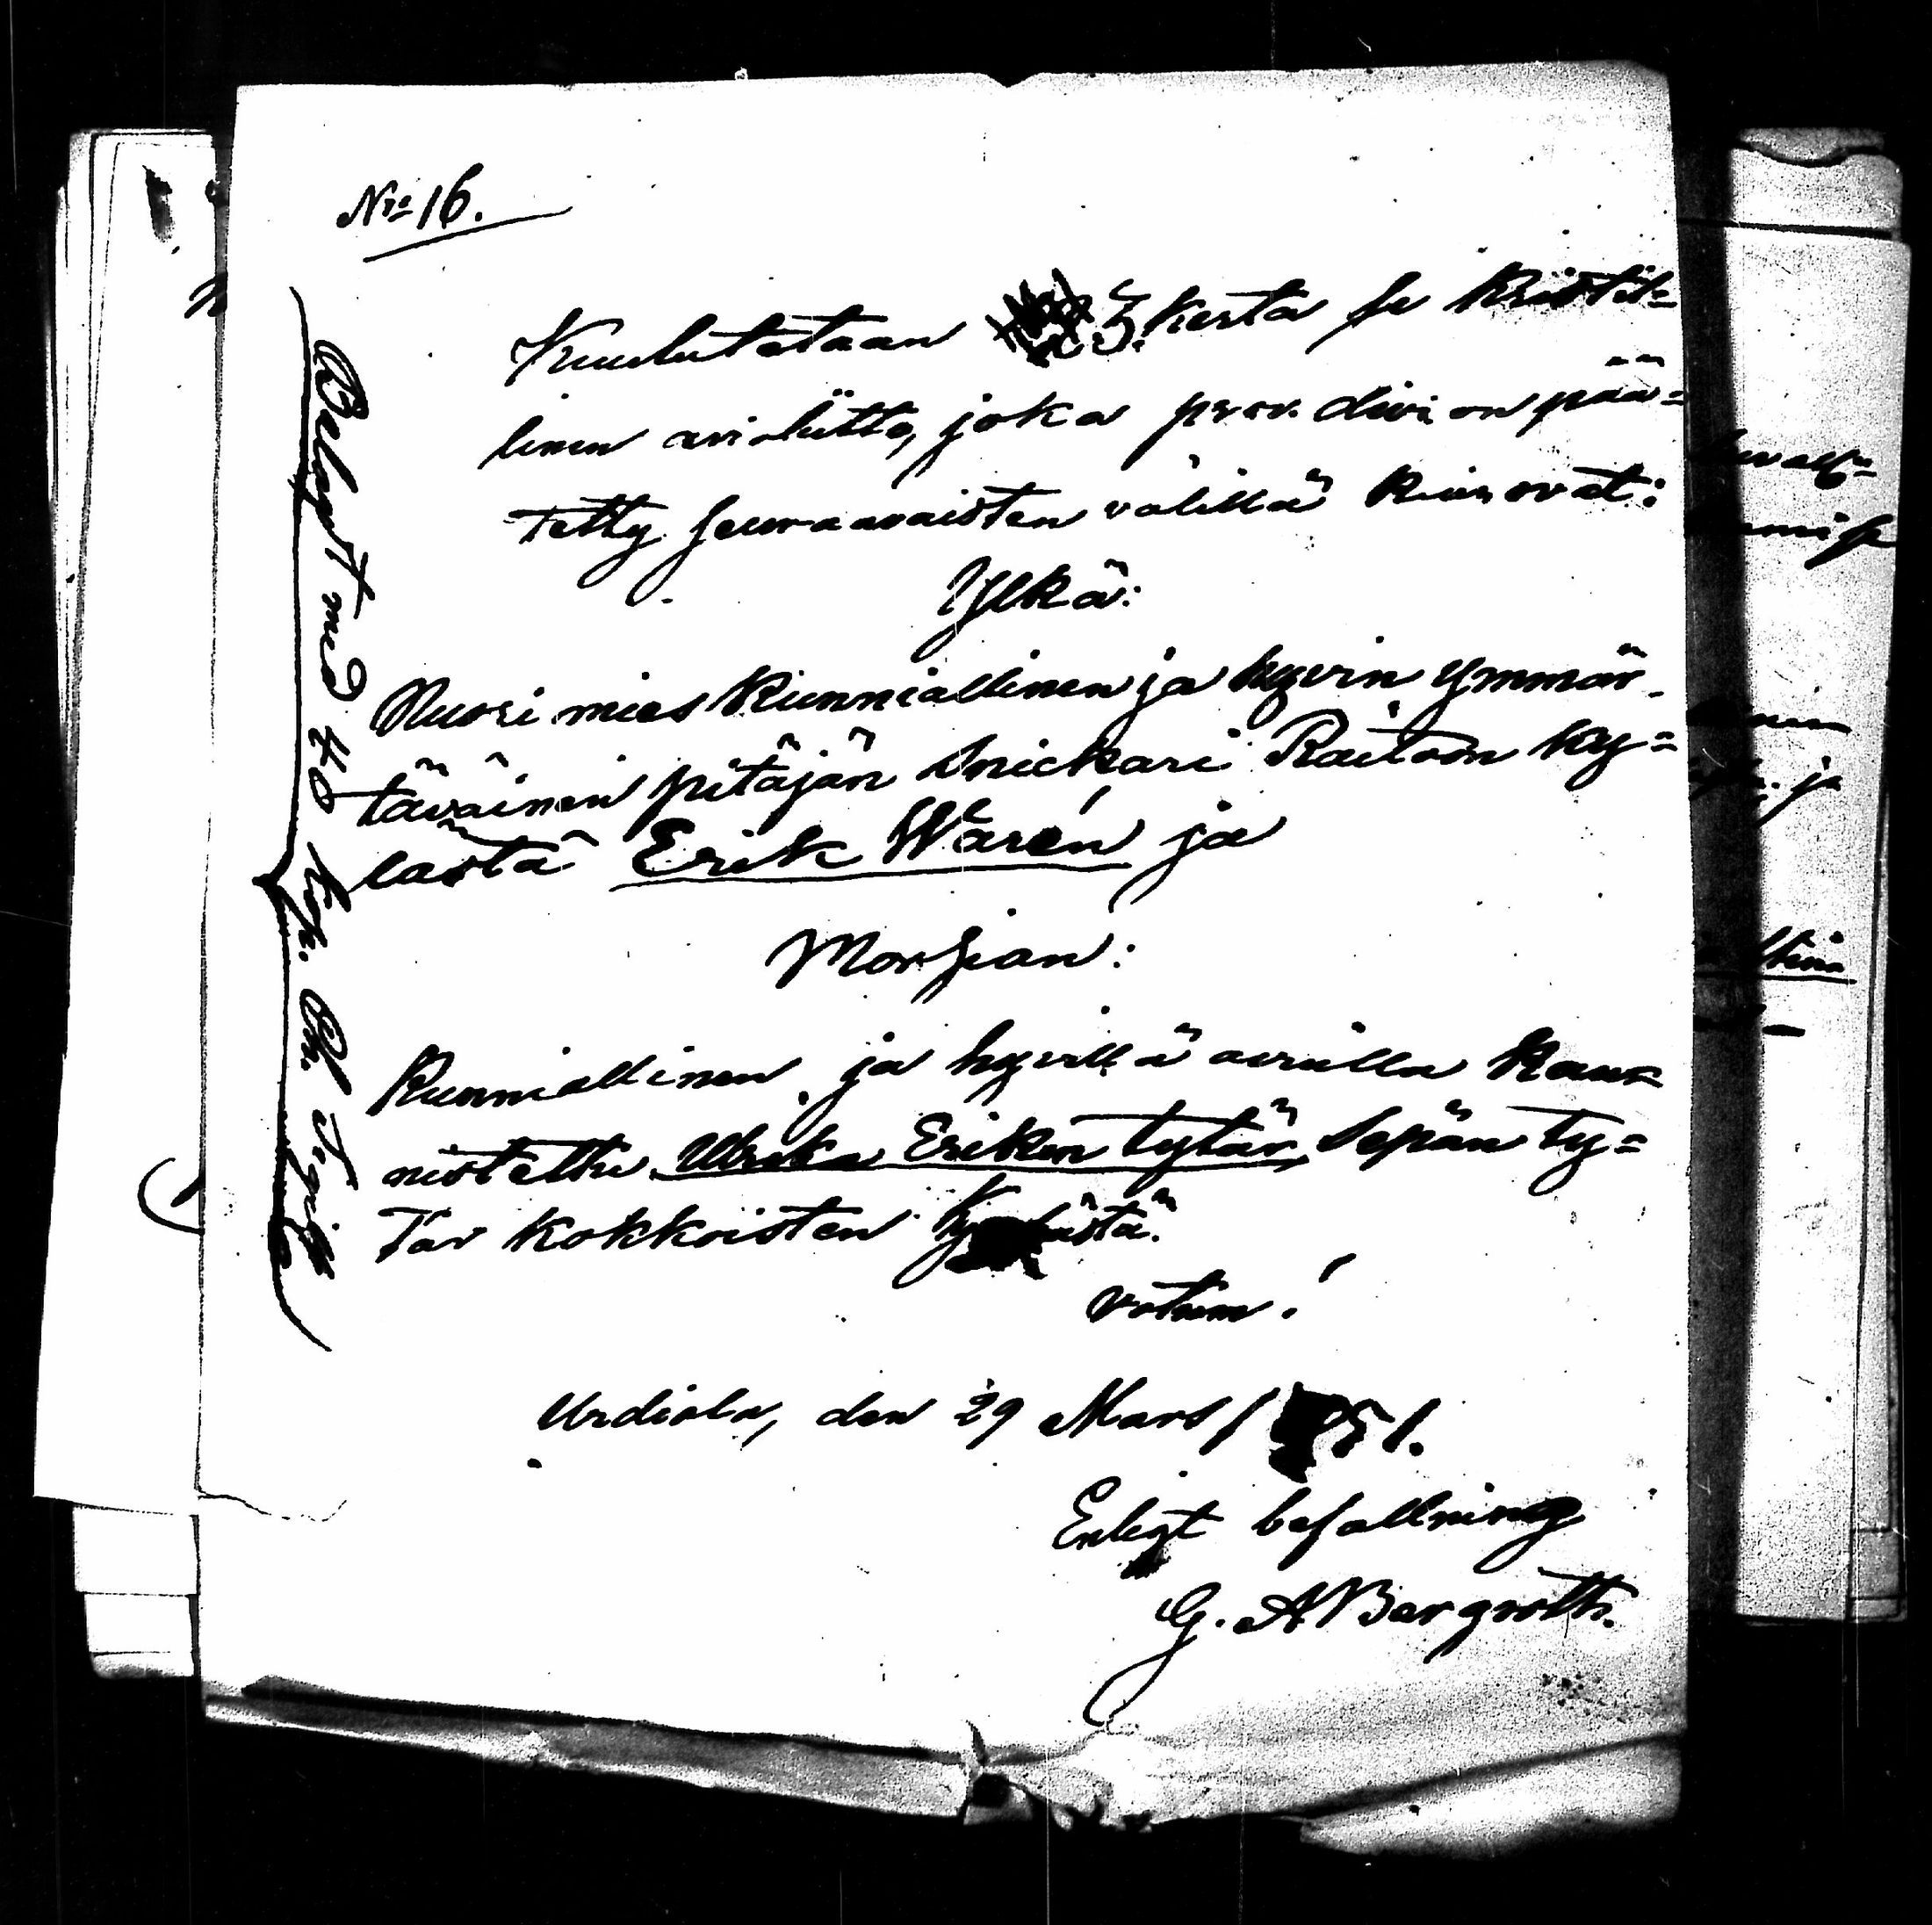 No 16.
Kuulutetaan 3. kerta se Kristil=
linen avioliitto, joka prov. divi on pää=
tetty seuraavaisten välillä kuin ovat:
Ylkä:
Nuori mies Kunniallinen ja hyvin ymmär=
täväinen pitäjän Snickari Raitoon ky=
lästä Erik Warén ja
Morsian:
Kunniallinen ja hyvillä avuilla kau=
nistettu Ulrika Erikin tytär, Sepän ty=
tär Kokkoisten Kylästä.
votum!
Urdiala, den 29 Mars 1851.
Enligt befallning
G. A Bergroth.
Belagt med 40 kop. Ch. Sigill